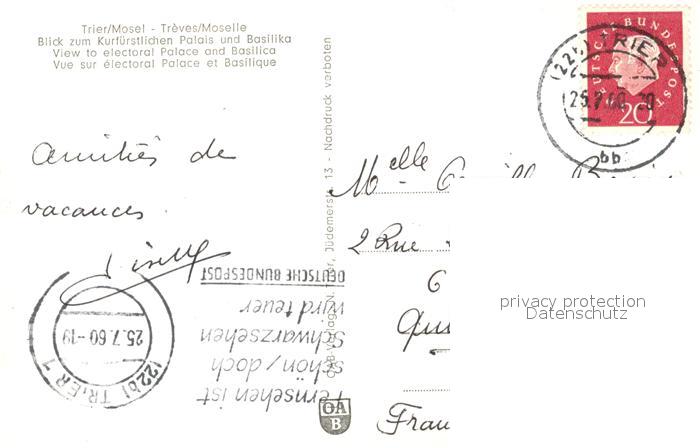 Trier/Mosel - Trèves/Moselle
Blick zum Kurfürstlichen Palais und Basilika
View to electoral Palace and Basilica
Vue sur électoral Palace et Basilique
Amitiés de
vacances
DEUTSCHE BUNDESPOST
20
(22b) TRIER
25.7.60
bb
Melle
2 Rue
6
Fran
privacy protection
Datenschutz
Fernsehen ist
schön/doch
Schwarzsehen
wird teuer
DEUTSCHE BUNDESPOST
(22b) TRIER 1
25.7.60-19
Jüdemerstr. 13 - Nachdruck verboten
OA
B